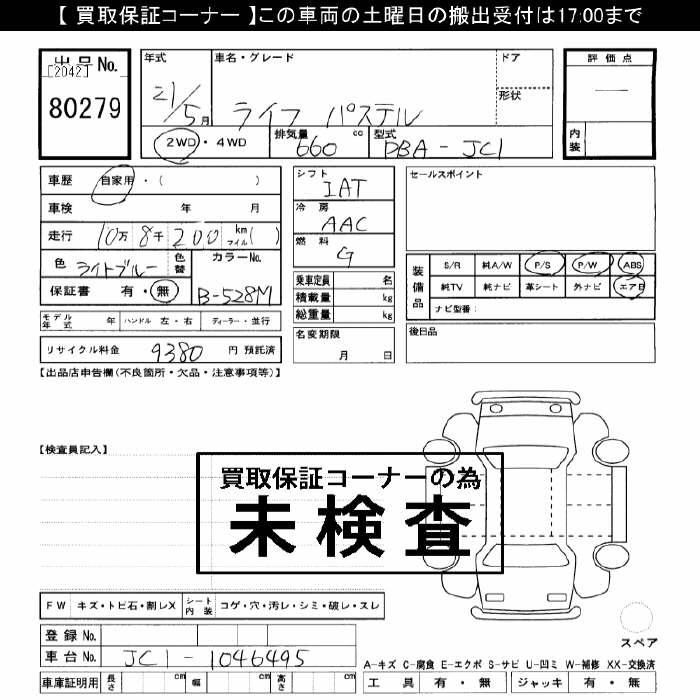 【 買取保証コーナー 】この車両の土曜日の搬出受付は17:00まで
出品 No.
[2042]
80279
年式
21/5月
車名・グレード
ライフ パステル
ドア
形状
2WD・4WD
排気量
660 cc
型式
DBA-JC1
評価点
―
内装
車歴 自家用・( )
車検 年 月
走行 10万 8千 200 km マイル( )
色 ライトブルー
色替
カラーNo.
B-528M
保証書 有・無
モデル年式 年 ハンドル 左・右 ディーラー・並行
リサイクル料金 9380 円 預託済
シフト
IAT
冷房
AAC
燃料
G
乗車定員 名
積載量 kg
総重量 kg
名変期限
月 日
セールスポイント
装備品
S/R 純A/W P/S P/W ABS
純TV 純ナビ 革シート 外ナビ エアB
ナビ型番:
後日品
【出品店申告欄(不良箇所・欠品・注意事項等)】
【検査員記入】
買取保証コーナーの為
未検査
FW キズ・トビ石・割レX シート内装 コゲ・穴・汚レ・シミ・破レ・スレ
登録 No.
車台 No. JC1-1046495
車庫証明用 長さ cm 幅 cm 高さ cm
スペア
A-キズ C-腐食 E-エクボ S-サビ U-凹ミ W-補修 XX-交換済
工具 有・無 ジャッキ 有・無